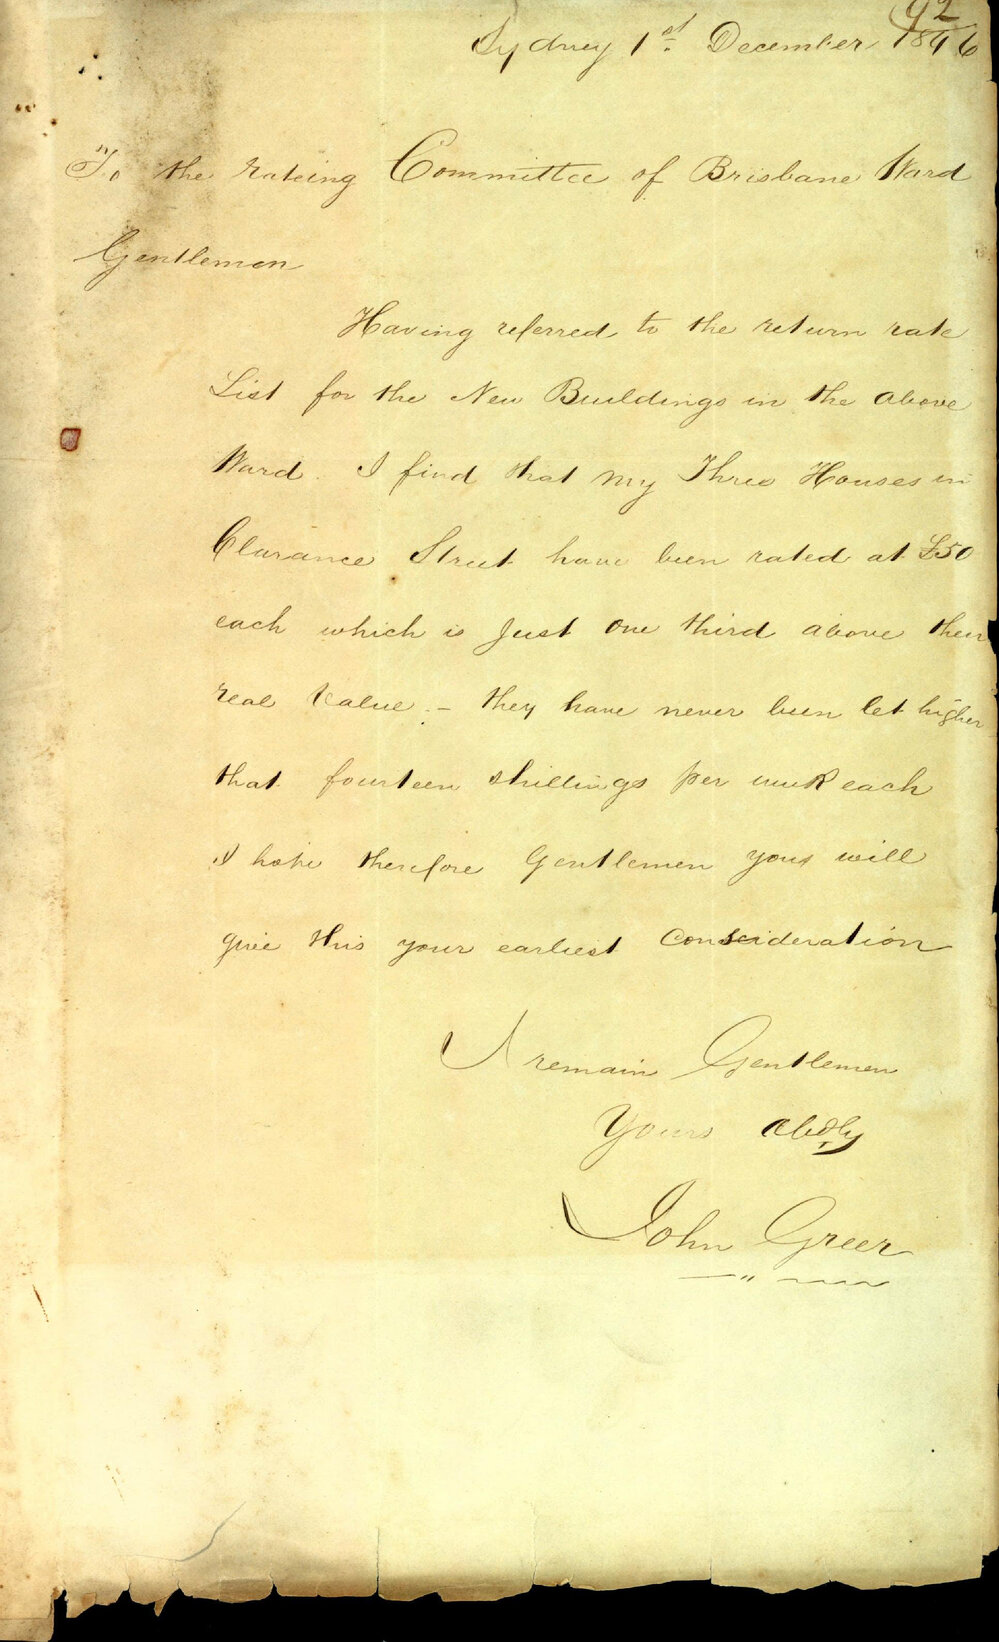 92
Sydney 1st December 1846
To the rateing Committee of Brisbane Ward
Gentlemen
Having referred to the return rate
List for the New Buildings in the above
Ward. I find that my Three Houses in
Clarance Street have been rated at £50
each which is Just one third above their
real Value. - they have never been let higher
that fourteen shillings per week each
I hope therefore Gentlemen your will
give this your earliest consideration
I remain Gentlemen
Yours Obdly
John Greer